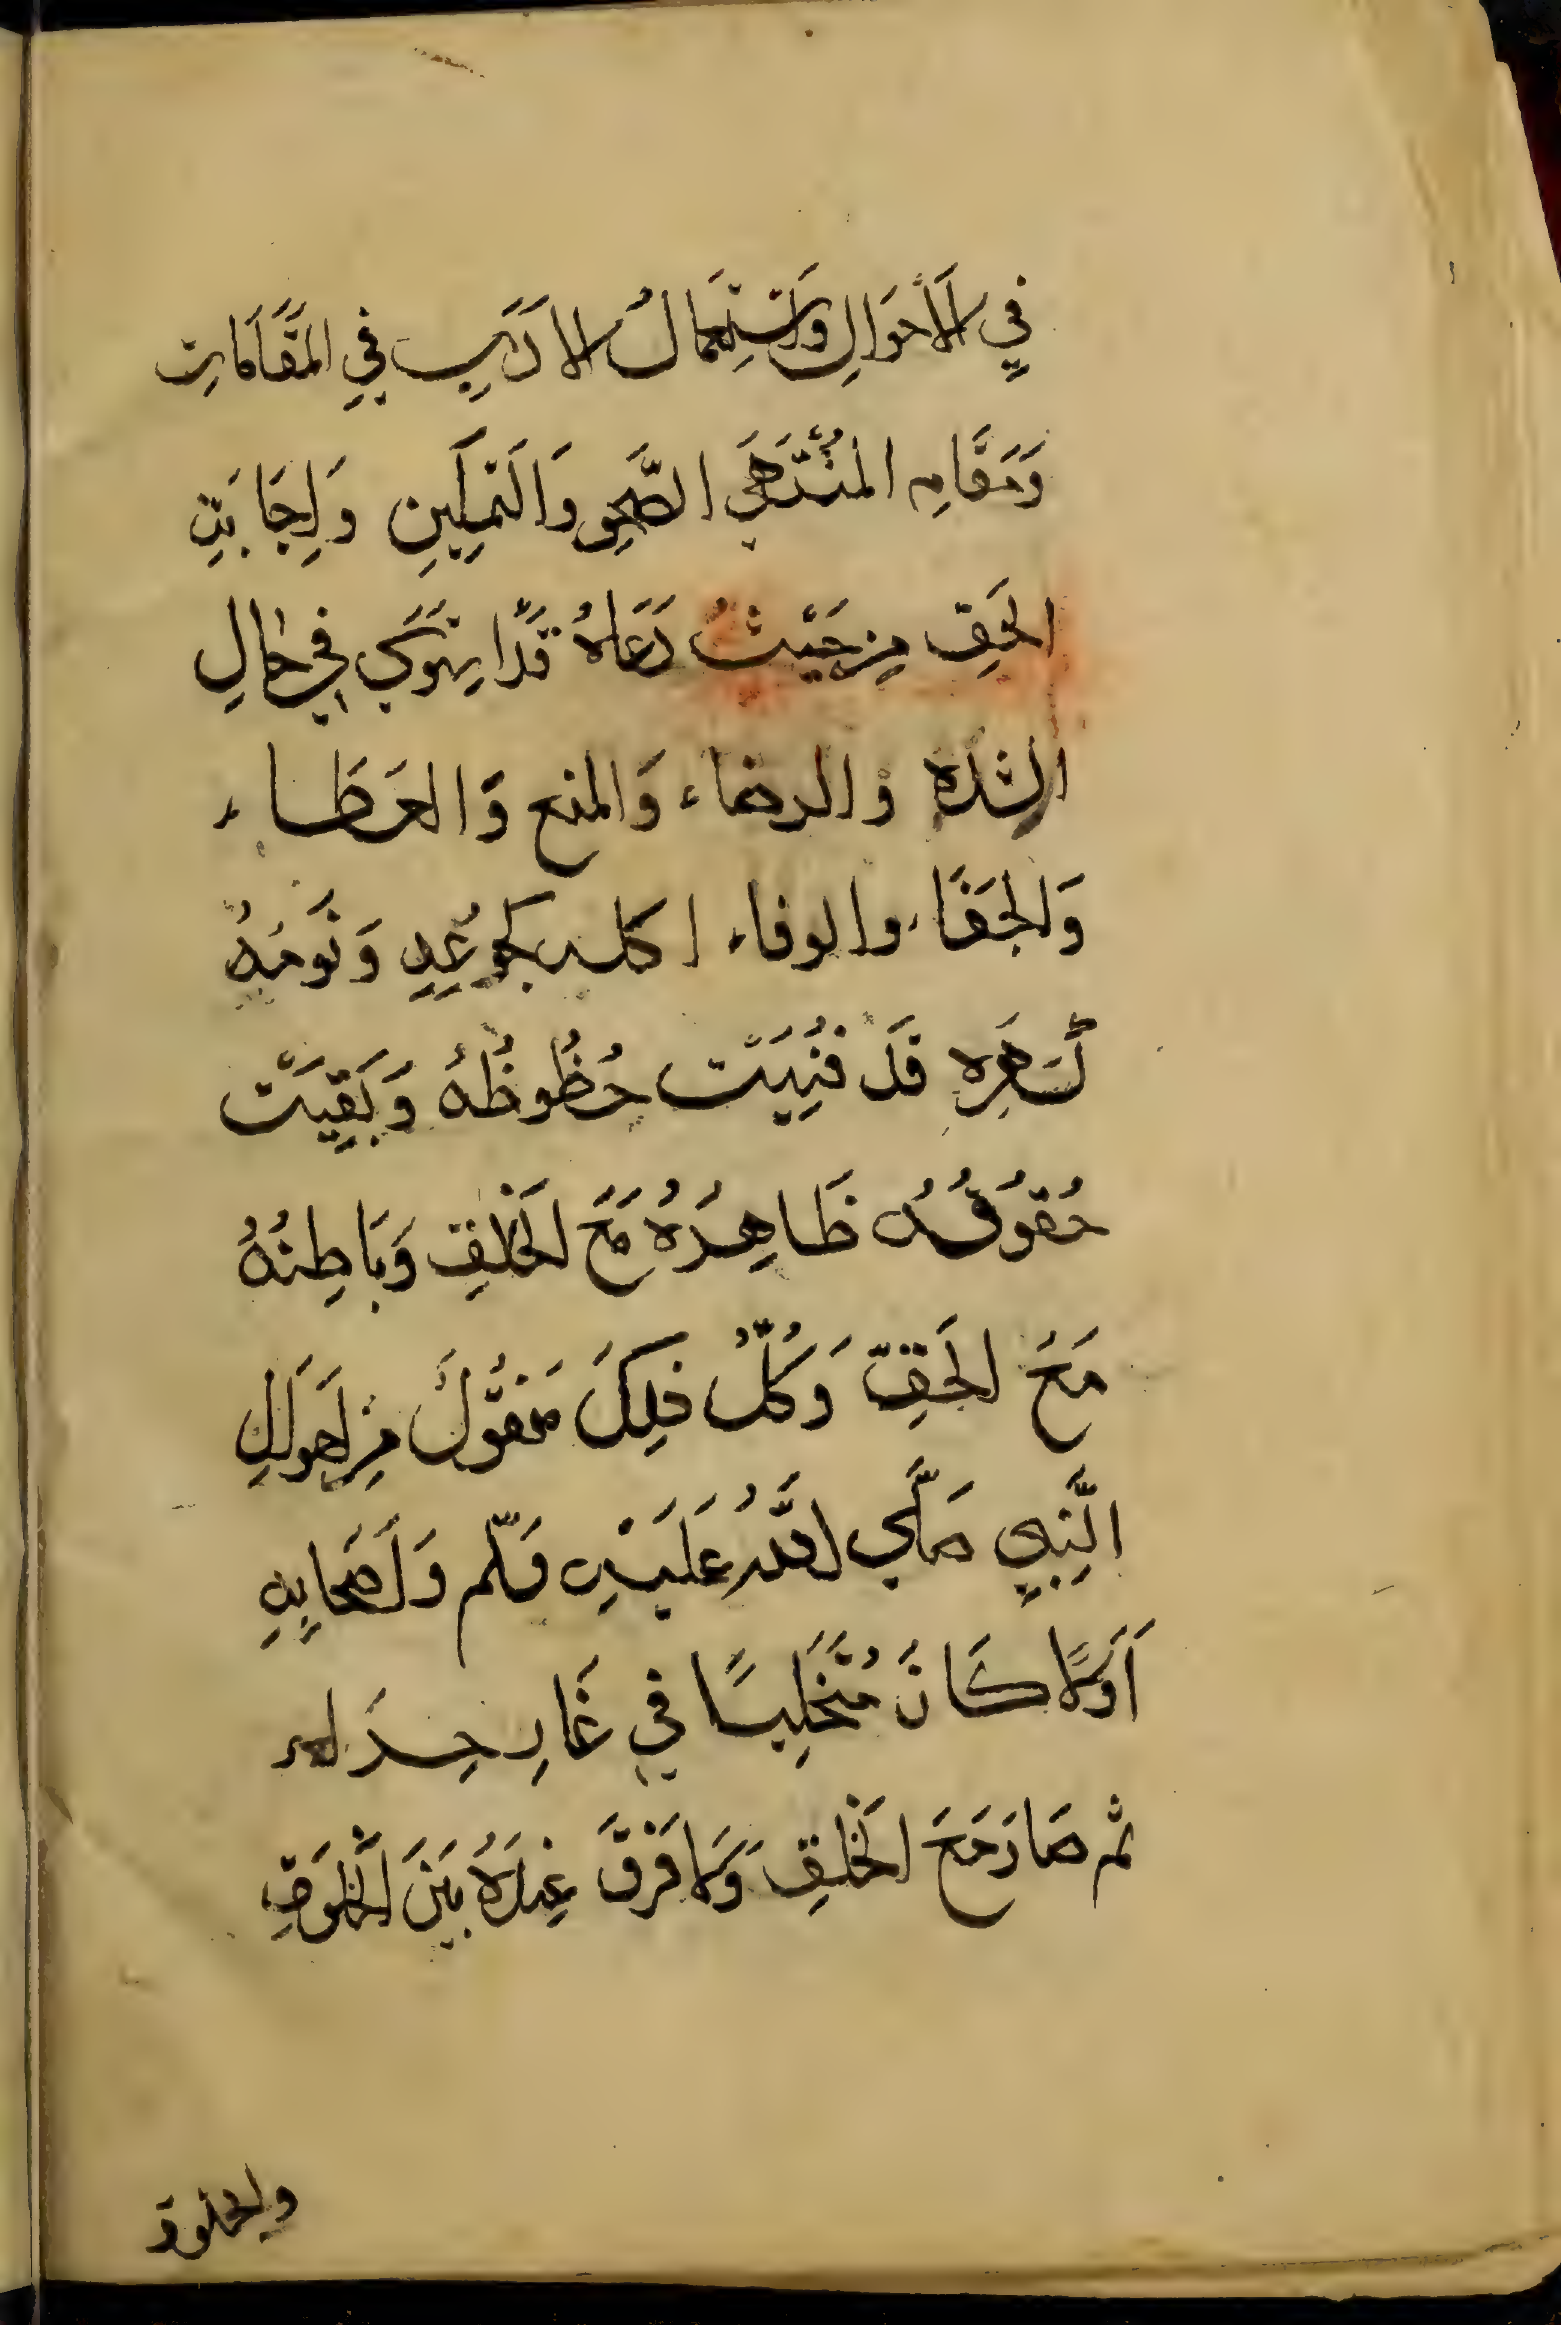 فِي الأَحْوَالِ وَاسْتِعْمَالُ الأَدَبِ فِي المَقَامَاتِ
وَمَقَامِ المُنْتَهَى الصَّحْوِ وَالتَمْكِينِ وَإِجَابَتِ
الحَقِ مِنْ حَيْثُ دَعَاهُ قَدْ اِسْتَوَى فِي حَالِ
الشدة وَالرخاء وَالمنع وَالعَطَاء
وَالجَفَاء والوفاء اكله كجوعِهِ وَنَومُهُ
كَسَهَرِهِ قَد فَنِيَتْ حُظُوظُهُ وَبَقِيَتْ
حُقُوقُهُ ظَاهِرُهُ مَعَ الخَلْقِ وَبَاطِنُهُ
مَعَ الحَقِّ وَكُلُّ ذلِكَ مَنْقُولٌ مِنْ احوالِ
النَّبِي صَلَّى اللَّهُ عَلَيْهِ وَسَلّم وَاَصْحَابِهِ
اَوَّلًا كَانَ مُتَخَلِّيًا فِي غَارِ حِرَاء
ثم صَارَ مَعَ الخَلْقِ وَلَا فَرْقَ عِنْدَهُ بَيْنَ الخَلْوَةِ
والجلوة